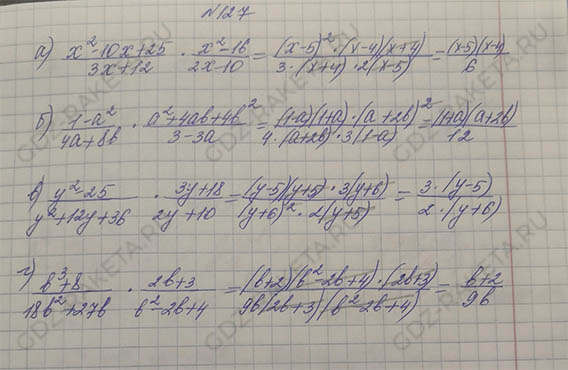 №127
а) (x²-10x+25)/(3x+12) · (x²-16)/(2x-10) = ((x-5)²·(x-4)(x+4))/(3·(x+4)·2(x-5)) = ((x-5)(x-4))/6
б) (1-a²)/(4a+8b) · (a²+4ab+4b²)/(3-3a) = ((1-a)(1+a)·(a+2b)²)/(4·(a+2b)·3(1-a)) = ((1+a)(a+2b))/12
в) (y²-25)/(y²+12y+36) · (3y+18)/(2y+10) = ((y-5)(y+5)·3(y+6))/((y+6)²·2(y+5)) = (3·(y-5))/(2·(y+6))
г) (b³+8)/(18b²+27b) · (2b+3)/(b²-2b+4) = ((b+2)(b²-2b+4)·(2b+3))/(9b(2b+3)(b²-2b+4)) = (b+2)/(9b)
GDZ-RAKETA.RU